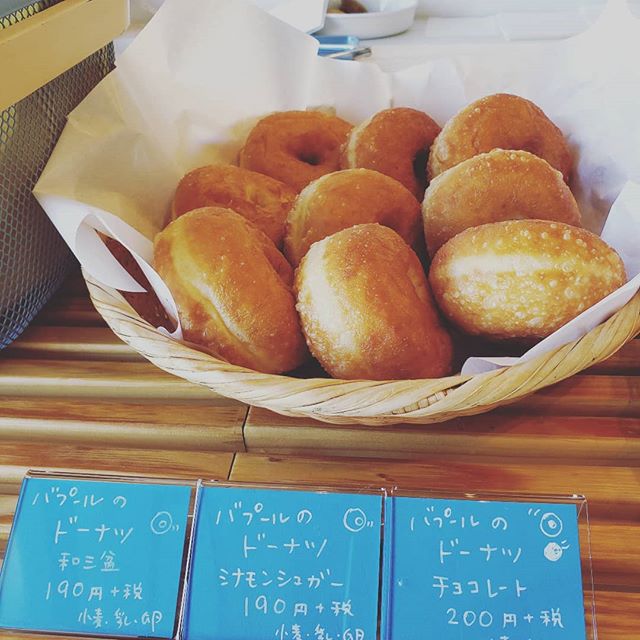 バプールの
ドーナツ
和三盆
190円+税
小麦・乳・卵
バプールの
ドーナツ
シナモンシュガー
190円+税
小麦・乳・卵
バプールの
ドーナツ
チョコレート
200円+税